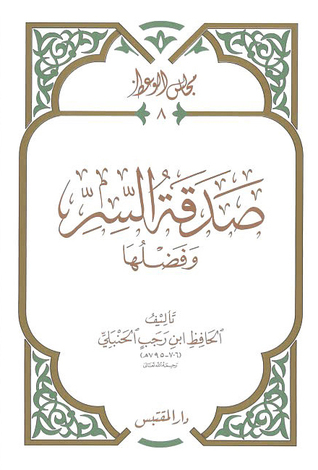 مجالس الوعظ
٨
صَدَقَةُ السِّرِّ
وَفَضْلُهَا
تَأْلِيْفُ
الحَافِظِ ابْنِ رَجَبٍ الحَنْبَلِيِّ
(٧٠٦-٧٩٥هـ)
رَحِمَهُ اللهُ تَعَالَى
دار المقتبس